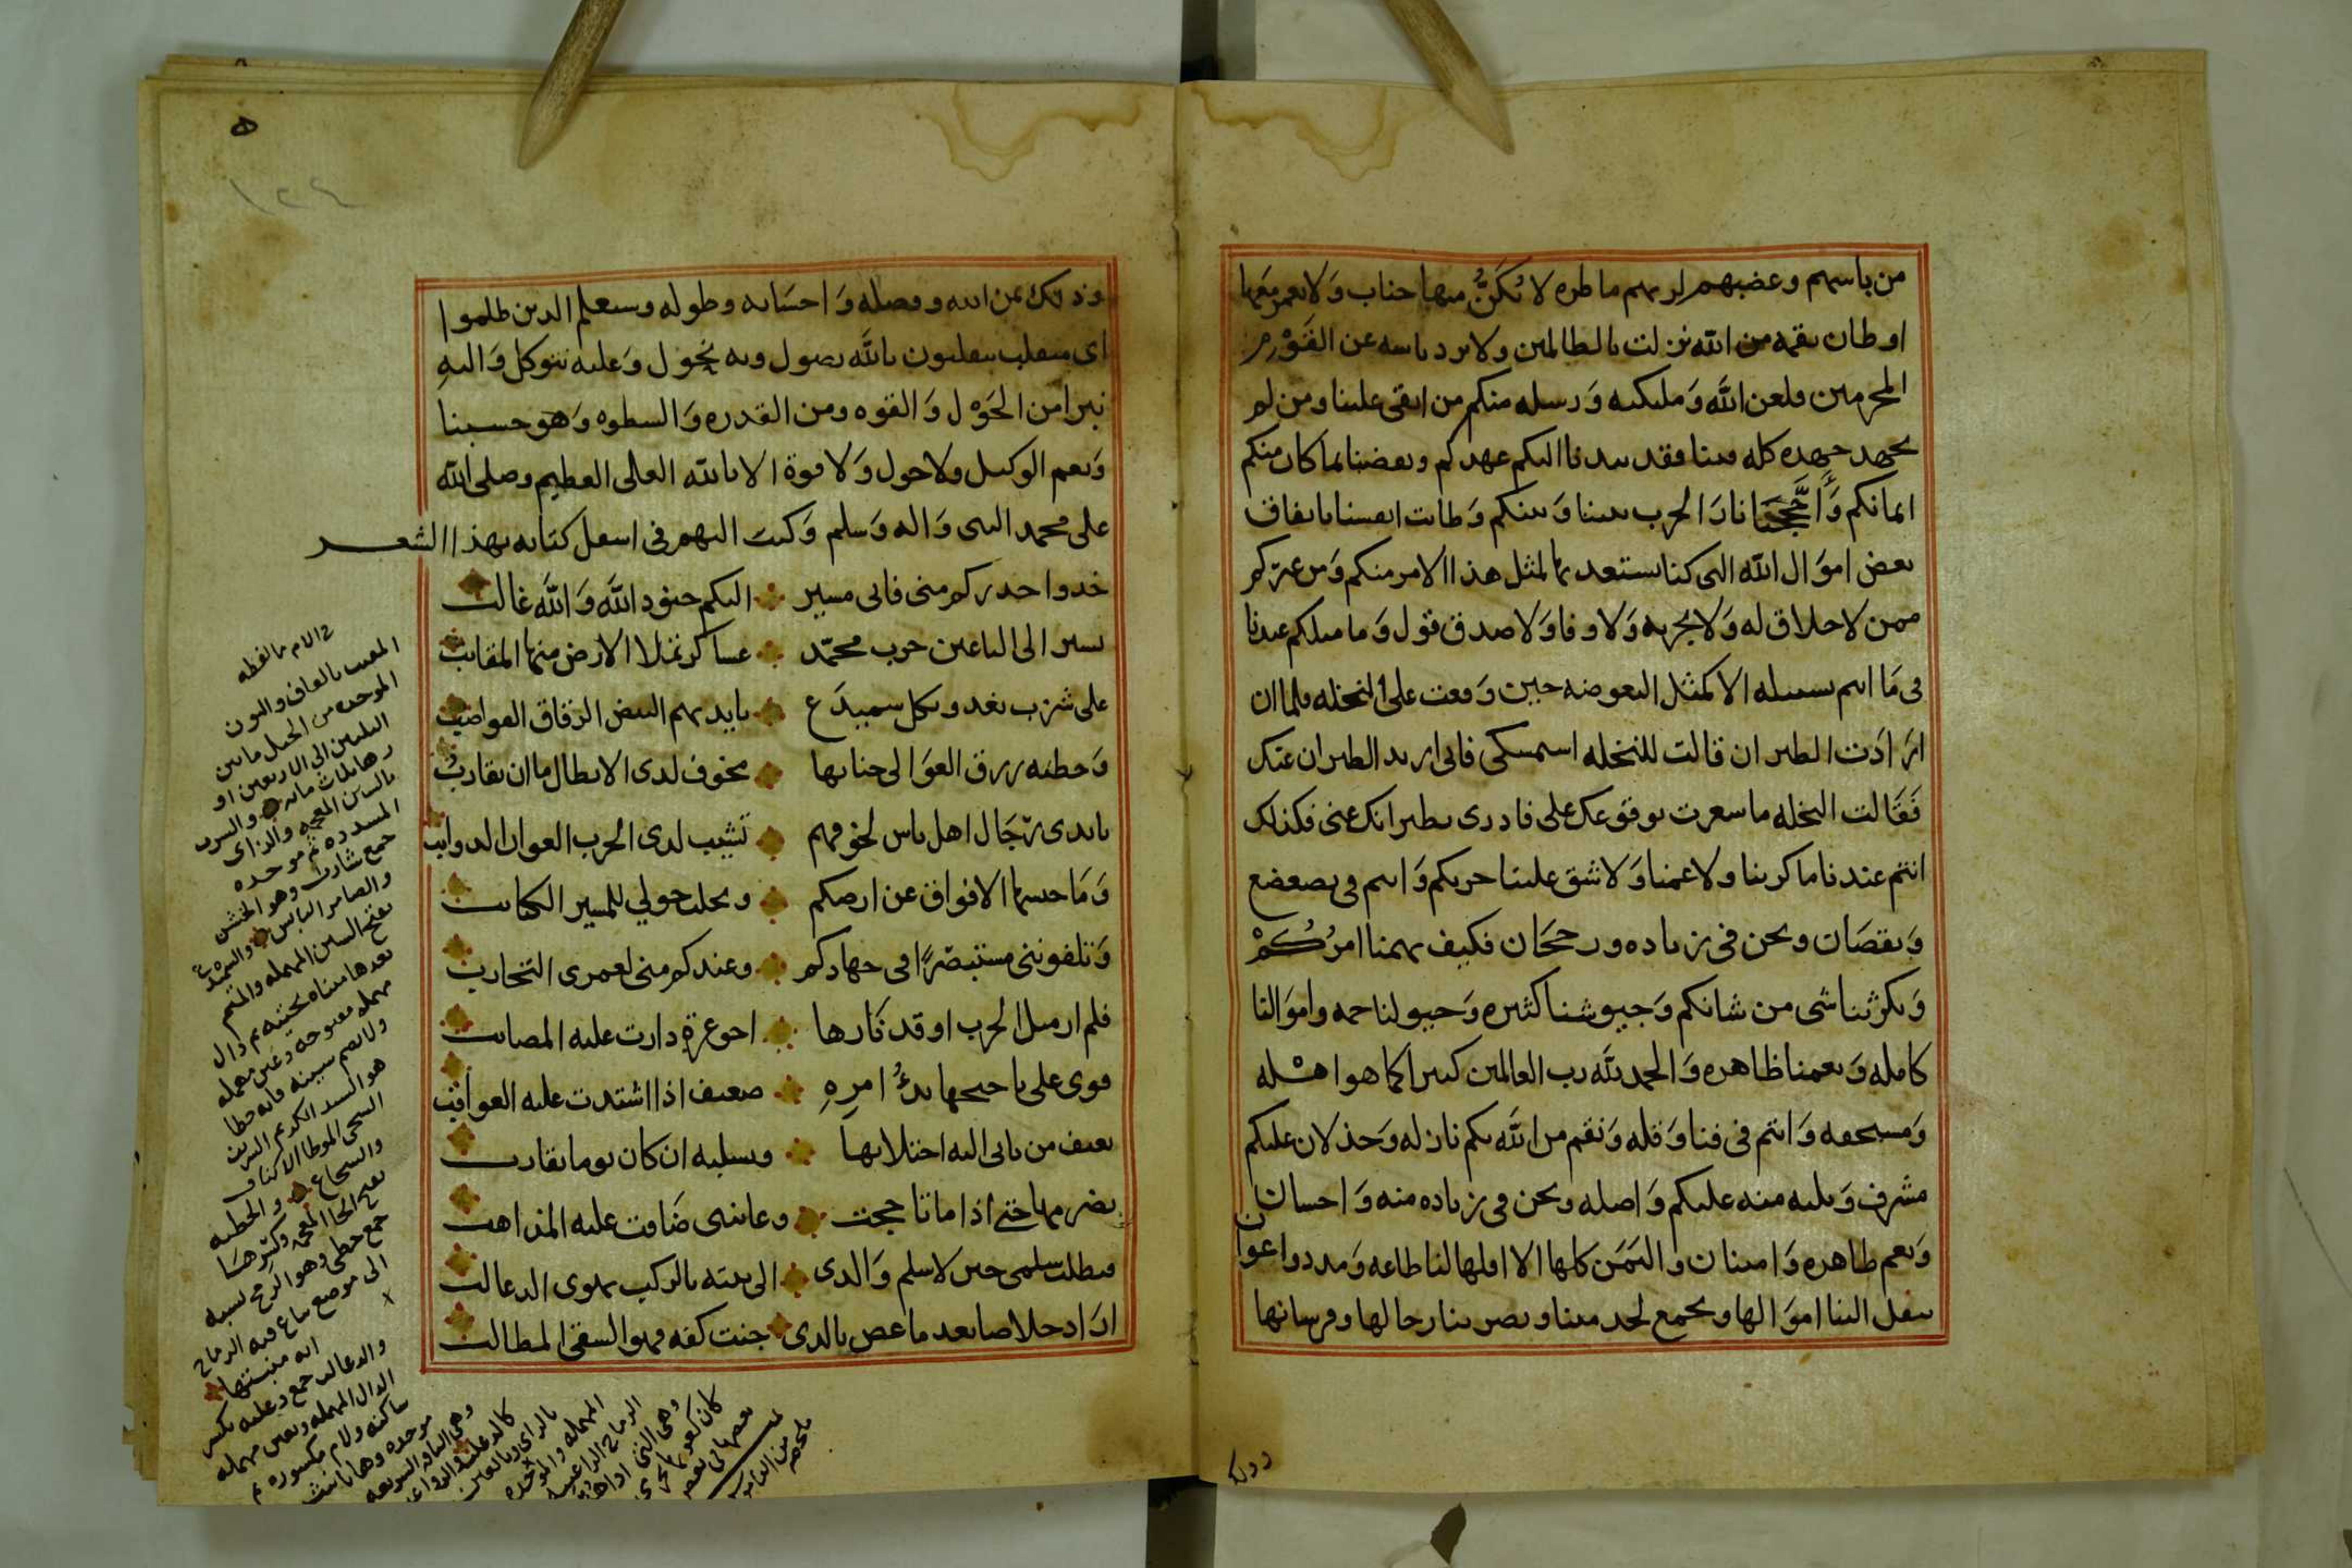 من باسهم وعضبهم لم نهم ماطره لا تُكنُّ منها جناب وَلا تعمر معها
اوطان نقمة من الله نزلت بالظالمين ولا يرد باسه عن القَوْمِ
المجرمين فلعن الله وَمليكته وَرسله منكم من ابقى علينا ومن لم
يجهد جهده كله فينا فقد نبدنا اليكم عهدكم وبعضنا ما كان منكم
ايمانكم وَاجَّجنا نارَ الحرب بيننا وَبينكم وَطابت انفسنا بانفاق
بعض اموَال الله التي كنا نستعد بها لمثل هذا الامر منكم وَمن غيركم
ممن لا خلاق له وَلا تجربه وَلا وفا وَلا صدق قول وَما مثلكم عندنا
في مَا انتم بسبيله الا كمثل البعوضه حين وَقعت على النخله فلما ان
ارَادَت الطيران قالت للنخله استمسكي فاني اريد الطيران عنك
فَقَالت النخله ما سعرت بوقوعك على فادرى بطيرانك عنى فكذلك
انتم عندنا ما كربنا ولا عمنا وَلا شق علينا حربكم وَانتم في تضعضع
وَنقصَان ونحن في زياده ورجحَان فكيف يهمنا امرُكُمْ
وَيكرثنا شي من شانكم وَجيوشنا كثيره وَخيولنا جمه واموَالنا
كامله وَنعمنا ظاهره وَالحمد لله رب العالمين كثيرا كما هو اهْله
وَمستحقه وَانتم في فنا وَقله وَنقم من الله بكم نازله وَخذلان عليكم
مشرف وَبليه منه عليكم وَاصله ونحن في زياده منه وَاحسان
وَنعم ظاهره وَامتنان واليَمَن كلها الا اقلها لنا طاعه وَمدد واعوان
تنقل الينا اموَالها وتجمع لحد مننا ونصرتنا رجالها وفرسانها
وذلك
وذلك من الله وفضله وَاحسَانه وطوله وسيعلم الذين ظلموا
اى منقلب ينقلبون بالله نصول وبه نحول وَعليه نتوكل وَاليهِ
نبرا من الحَوْل وَالقوه ومن القدره وَالسطوه وَهو حسبنا
وَنعم الوكيل ولا حول وَلا قوة الا بالله العلى العظيم وصلى الله
على محمد النبى وَاله وَسلم وَكتب اليهم في اسفل كتابه بهذا الشعر
خدوا حدركم منى فانى مسير اليكم جنودِ اللَّه وَاللَّه غالب
نسير الى الباغين حرب محمّد عساكر تملا الارض منها المقانب
على شزب تغدو بكل سميدَع بايديهم البيض الرقاق القواضب
وَخطيه زرق العوَالى جنابها مخوف لدى الابطال ما ان تقاربُ
بايدى رجَال اهل باس لخوفهم تشيب لدى الحرب العوان الدوايب
وَمَا حبسها الافواق عن ارضكم وتحلب حولي للمسير الكتايب
وَتلقوننى مستبصرًا فى جهادكم وعندكم منى لعمرى التجارب
فلم ار مثل الحرب اوقد نَارها اخو غرةٍ دارت عليه المصايب
قوى على تاجيجها بدءُ امرهِ ضعيف اذا اشتدت عليه العواقب
يعنف من ياتى اليه اختلابها ويسلبه ان كان يوما يقارب
يضرمها حتى اذا ما تاججت وعاينى ضَاقت عليه المذاهب
فيطلب سلمى حين لا سلم وَالدى الى بيته بالركب تهوى الدعالب
ارَاد خلاصا بعد ما عض بالدى جنت كفه فهو الشقى المطالب
المقنب بالقاف والنون
الموحده من الخيل ما بين
الثلثين الى الاربعين او
زها ثلاث مايه والشزب
بالشين المعجمه والزاى
المسدده ثم موحده
جمع شازب وهو الخشن
والضامر اليابس والسميدع
بفتح السين المهمله والميم
بعدها مثناه تحتيه ثم دال
مهمله مفتوحه وعين مهمله
ولا يضم سينه فانه خطا
هو السيد الكريم الشريف
السخى الموطا الاكناف
والشجاع والخطيه
بفتح الخا المعجمه وكسرها
جمع خطى وهو الرمح نسبه
الى موضع تباع فيه الرماح
لا انه منبتها
والدعالب جمع دعلبه بكسر
الدال المهمله وبعين مهمله
ساكنه ولام مكسوره ثم
موحده وها تانيث
وهى الناقه السريعه
٥
١٢٤